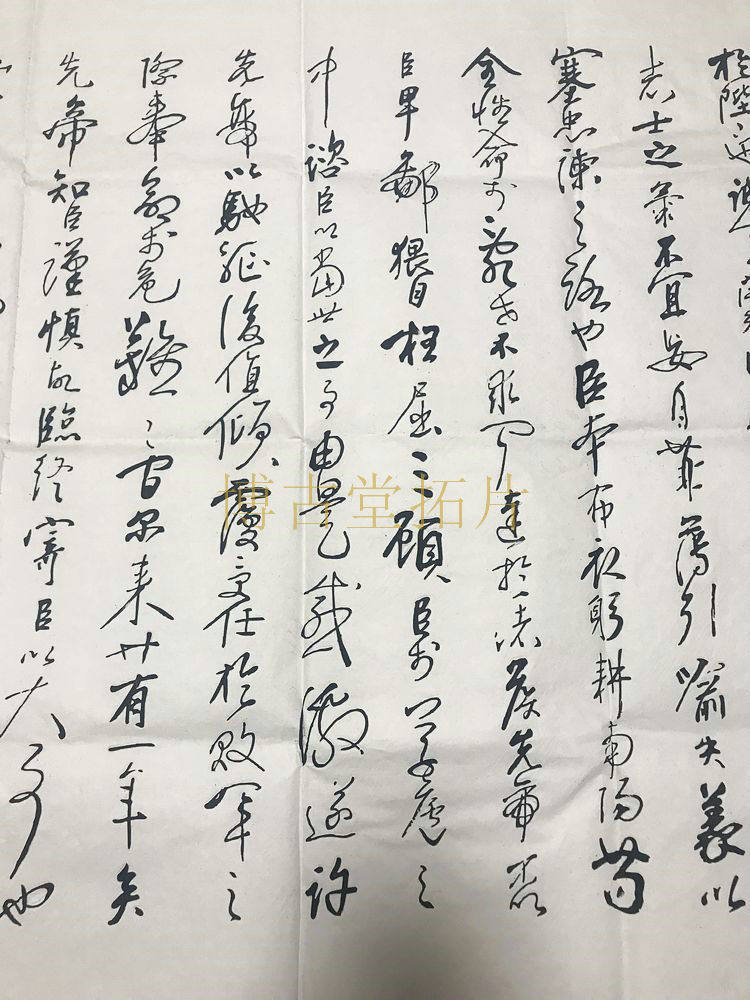 於陛下也誠宜開張
志士之氣不宜妄自菲薄引喻失義以
塞忠諫之路也臣本布衣躬耕南陽苟
全性命於亂世不求聞達於諸侯先帝不以
臣卑鄙猥自枉屈三顧臣於草廬之
中諮臣以當世之事由是感激遂許
先帝以馳驅後值傾覆受任於敗軍之
際奉命於危難之間爾來廿有一年矣
先帝知臣謹慎故臨終寄臣以大事也
博古堂拓片